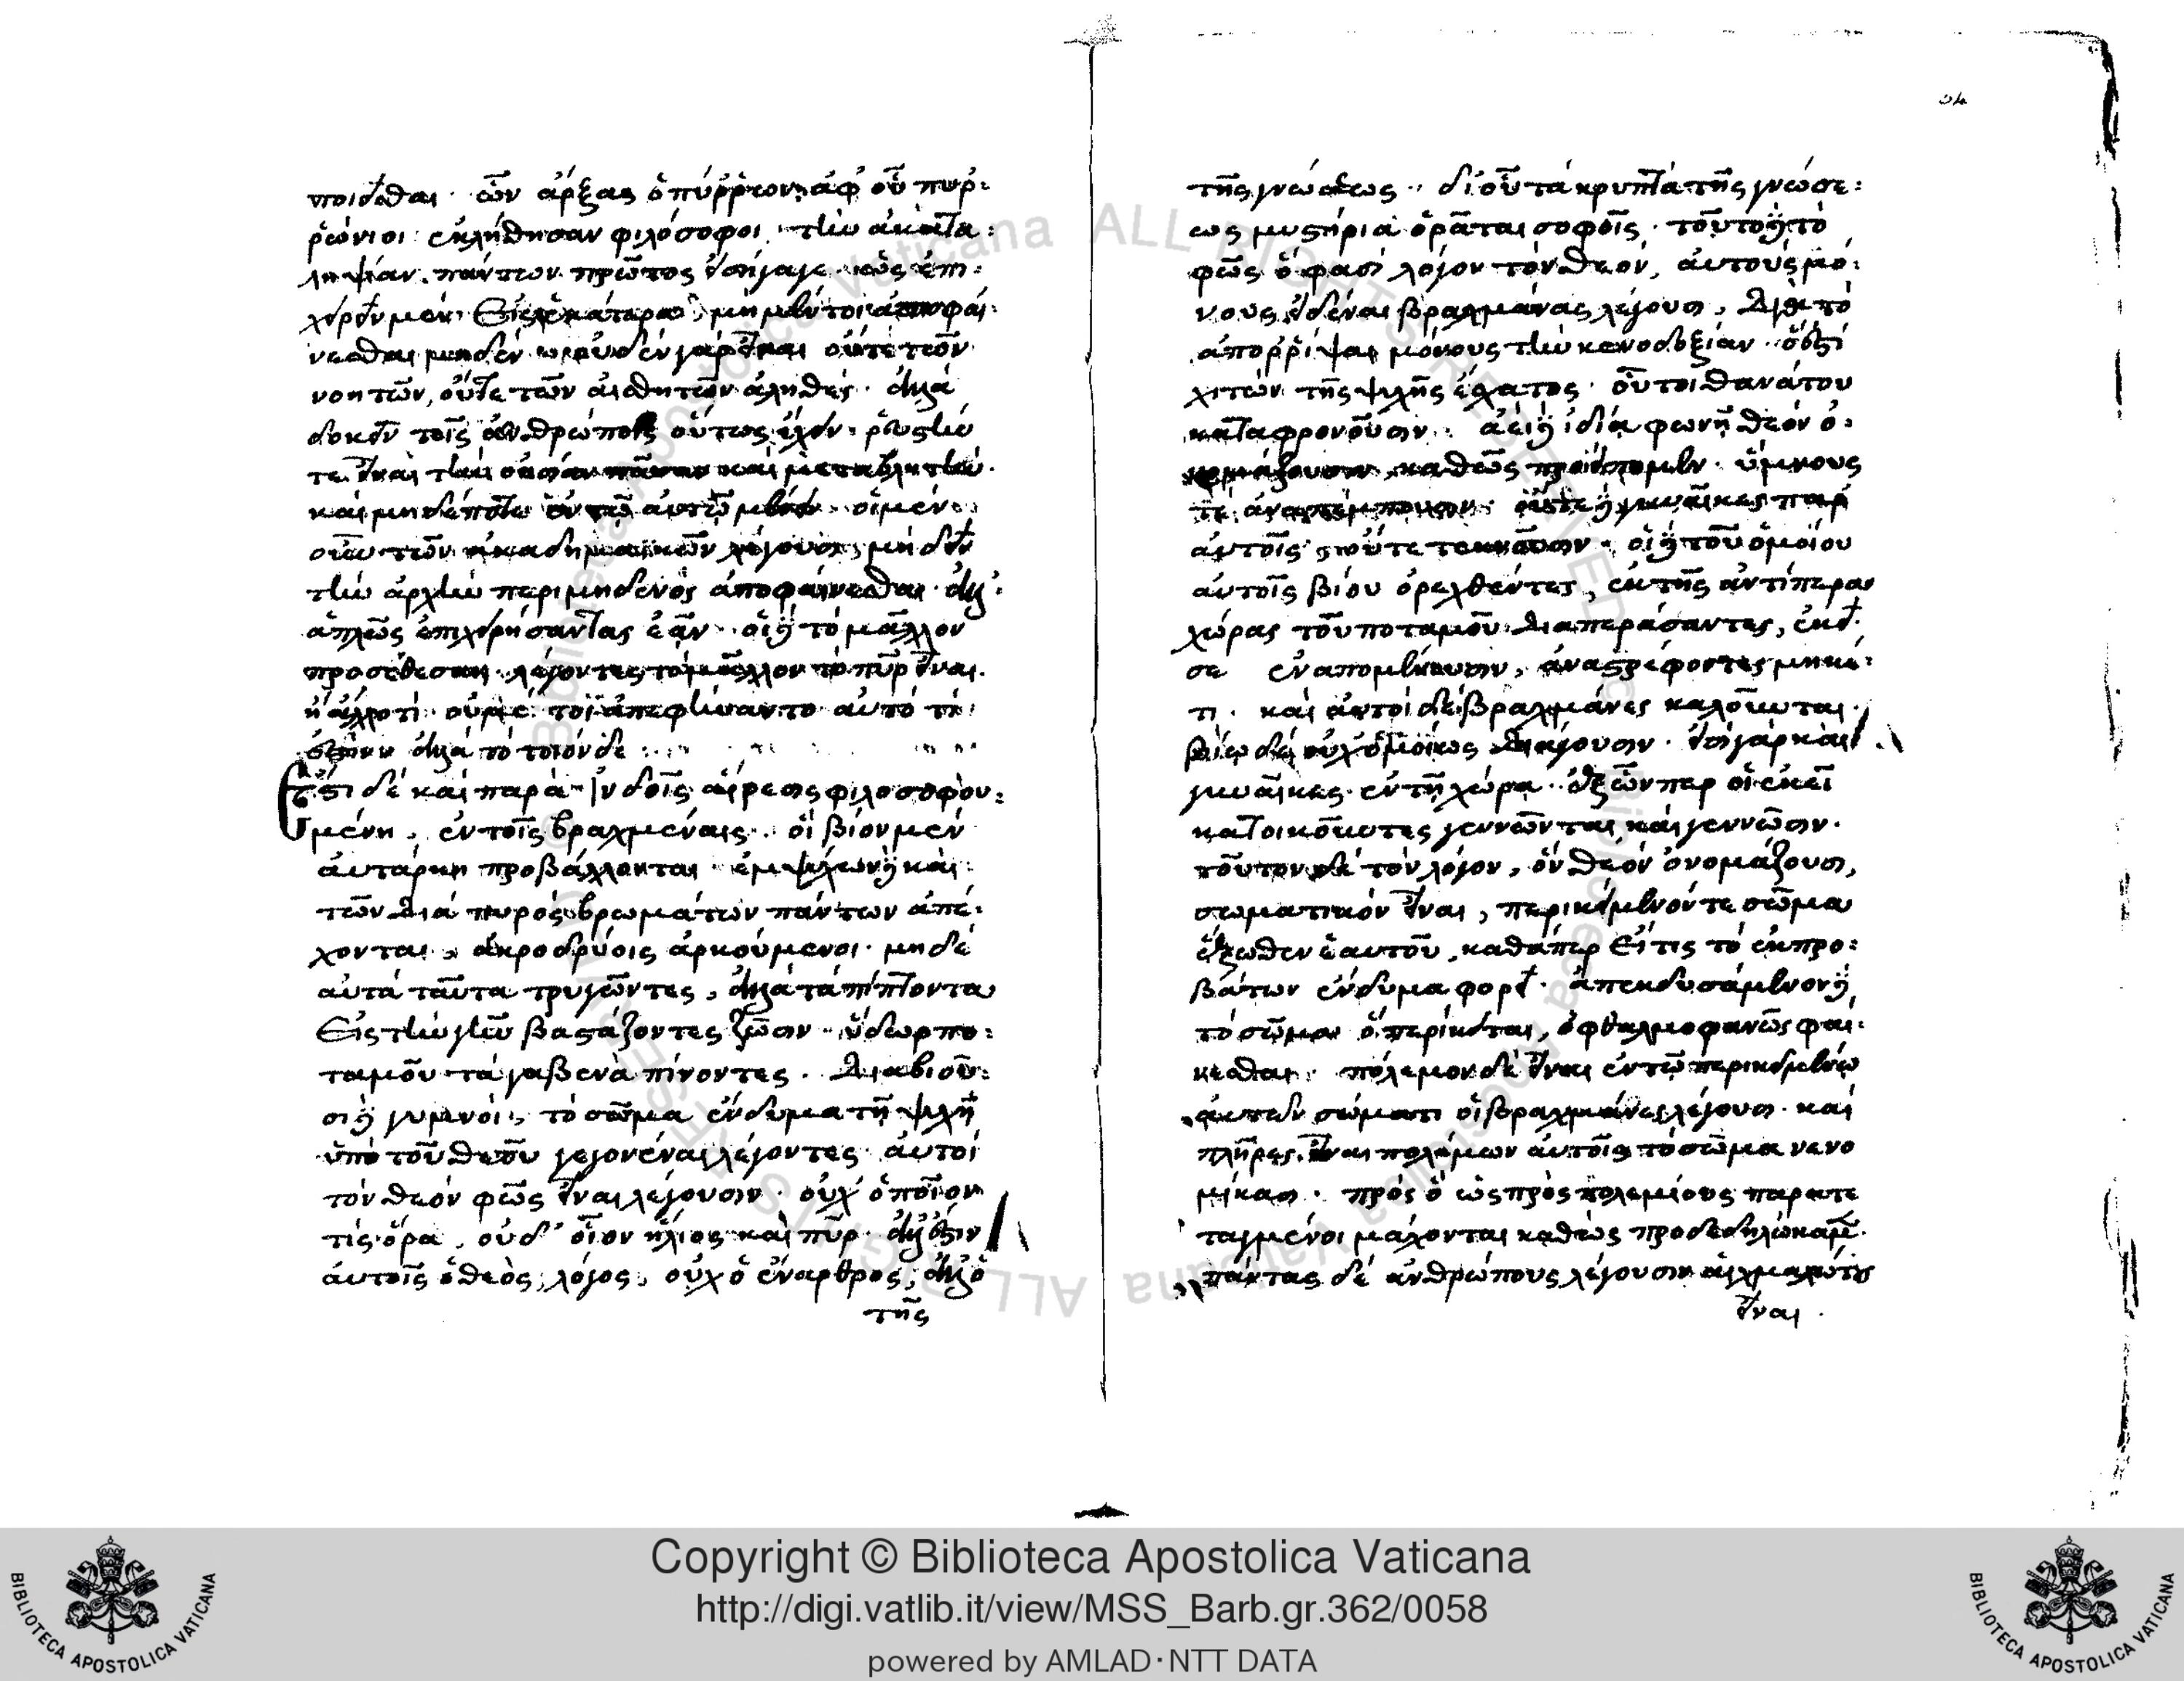 ποιεῖσθαι· ὧν ἄρξας ὁ πύρρων, ἀφ' οὗ πυρ:
ρώνιοι ἐκλήθησαν φιλόσοφοι· τὴν ἀκατα:
ληψίαν πάντων πρῶτος εἰσήγαγε. ὡς ἐπι:
χειρεῖν μὲν εἰς ἑκάτερα, μὴ μέντοι ἀποφαί:
νεσθαι μηδέν· οὐδὲν γὰρ εἶναι οὔτε τῶν
νοητῶν, οὔτε τῶν αἰσθητῶν ἀληθές. ἀλλὰ
δοκεῖν τοῖς ἀνθρώποις οὕτως ἔχειν. ῥευστήν
τε εἶναι τὴν οὐσίαν πᾶσαν καὶ μεταβλητήν.
καὶ μηδέποτε ἐν τῷ αὐτῷ μένειν. οἱ μὲν
οὖν τῶν ἀκαδημαϊκῶν λέγουσι, μὴ δεῖν
τὴν ἀρχὴν περὶ μηδενὸς ἀποφαίνεσθαι. ἀλλ'
ἁπλῶς ἐπιχειρήσαντας ἐᾶν. οἱ δὲ τὸ μᾶλλον
προσέθεσαν λέγοντες τὸ μᾶλλον τὸ πῦρ εἶναι.
ἢ ἄλλο τί. οὐ μέντοι ἀπεφήναντο αὐτὸ τί
ἐστιν ἀλλὰ τὸ τοιόνδε
Ἔστι δὲ καὶ παρὰ Ἰνδοῖς αἵρεσις φιλοσοφου:
μένη, ἐν τοῖς βραχμέναις. οἳ βίον μὲν
αὐτάρκη προβάλλονται ἐμψύχων δὲ καὶ
τῶν διὰ πυρὸς βρωμάτων πάντων ἀπέ:
χονται, ἀκροδρύοις ἀρκούμενοι. μηδὲ
αὐτὰ ταῦτα τρυγῶντες, ἀλλὰ τὰ πίπτοντα
εἰς τὴν γῆν βαστάζοντες ζῶσιν. ὕδωρ πο:
ταμοῦ ταγαβενὰ πίνοντες. διαβιοῦ:
σι δὲ γυμνοί, τὸ σῶμα ἔνδυμα τῇ ψυχῇ
ὑπὸ τοῦ θεοῦ γεγονέναι λέγοντες· αὐτοὶ
τὸν θεὸν φῶς εἶναι λέγουσιν. οὐχ ὁποῖον
τις ὁρᾶ, οὐδ' οἷον ἥλιος καὶ πῦρ. ἀλλ' ἔστιν
αὐτοῖς ὁ θεὸς, λόγος, οὐχ ὁ ἔναρθρος, ἀλλ' ὁ
τῆς
τῆς γνώσεως. δι' οὗ τὰ κρυπτὰ τῆς γνώσε:
ως μυστήρια ὁρᾶται σοφοῖς. τοῦτο δὲ τὸ
φῶς ὅ φασι λόγον τὸν θεόν, αὐτοὺς μό:
νους εἰδέναι βραχμάνας λέγουσι, διὰ τὸ
ἀπορρίψαι μόνους τὴν κενοδοξίαν. ὅ ἐστι
χιτὼν τῆς ψυχῆς ἔσχατος. οὗτοι θανάτου
καταφρονοῦσιν. ἀεὶ δὲ ἰδίᾳ φωνῇ θεὸν ὀ:
νομάζουσιν, καθὼς προείπομεν. ὕμνους
τε ἀναπέμπουσιν. οὔτε δὲ γυναῖκες παρ'
αὐτοῖς, οὔτε τεκνοῦσιν. οἱ δὲ τοῦ ὁμοίου
αὐτοῖς βίου ὀρεχθέντες, ἐκ τῆς ἀντίπερα
χώρας τοῦ ποταμοῦ διαπεράσαντες, ἐκεῖ:
σε ἐναπομένουσιν, ἀναστρέφοντες μηκέ:
τι. καὶ αὐτοὶ δὲ βραχμάνες καλοῦνται.
βίῳ δὲ οὐχ ὁμοίως διάγουσιν. εἰσὶ γὰρ καὶ
γυναῖκες ἐν τῇ χώρᾳ. ἐξ ὧνπερ οἱ ἐκεῖ
κατοικοῦντες γεννῶνται, καὶ γεννῶσιν.
τοῦτον δὲ τὸν λόγον, ὃν θεὸν ὀνομάζουσι,
σωματικὸν εἶναι, περικείμενόν τε σῶμα
ἔξωθεν ἑαυτοῦ, καθάπερ εἴ τις τὸ ἐκ προ:
βάτων ἔνδυμα φορεῖ. ἀπεκδυσάμενον δὲ
τὸ σῶμα ὃ περίκειται, ὀφθαλμοφανῶς φαί:
νεσθαι. πόλεμον δὲ εἶναι ἐν τῷ περικειμένῳ
αὐτῶν σώματι οἱ βραχμάνες λέγουσι. καὶ
πλῆρες εἶναι πολέμων αὐτοῖς τὸ σῶμα νενο
μίκασι. πρὸς ὃ ὡς πρὸς πολεμίους παρατε
ταγμένοι μάχονται καθὼς προδεδηλώκαμεν.
πάντας δὲ ἀνθρώπους λέγουσιν αἰχμαλώτους
εἶναι.
Copyright © Biblioteca Apostolica Vaticana
http://digi.vatlib.it/view/MSS_Barb.gr.362/0058
powered by AMLAD·NTT DATA
BIBLIOTECA APOSTOLICA VATICANA
BIBLIOTECA APOSTOLICA VATICANA